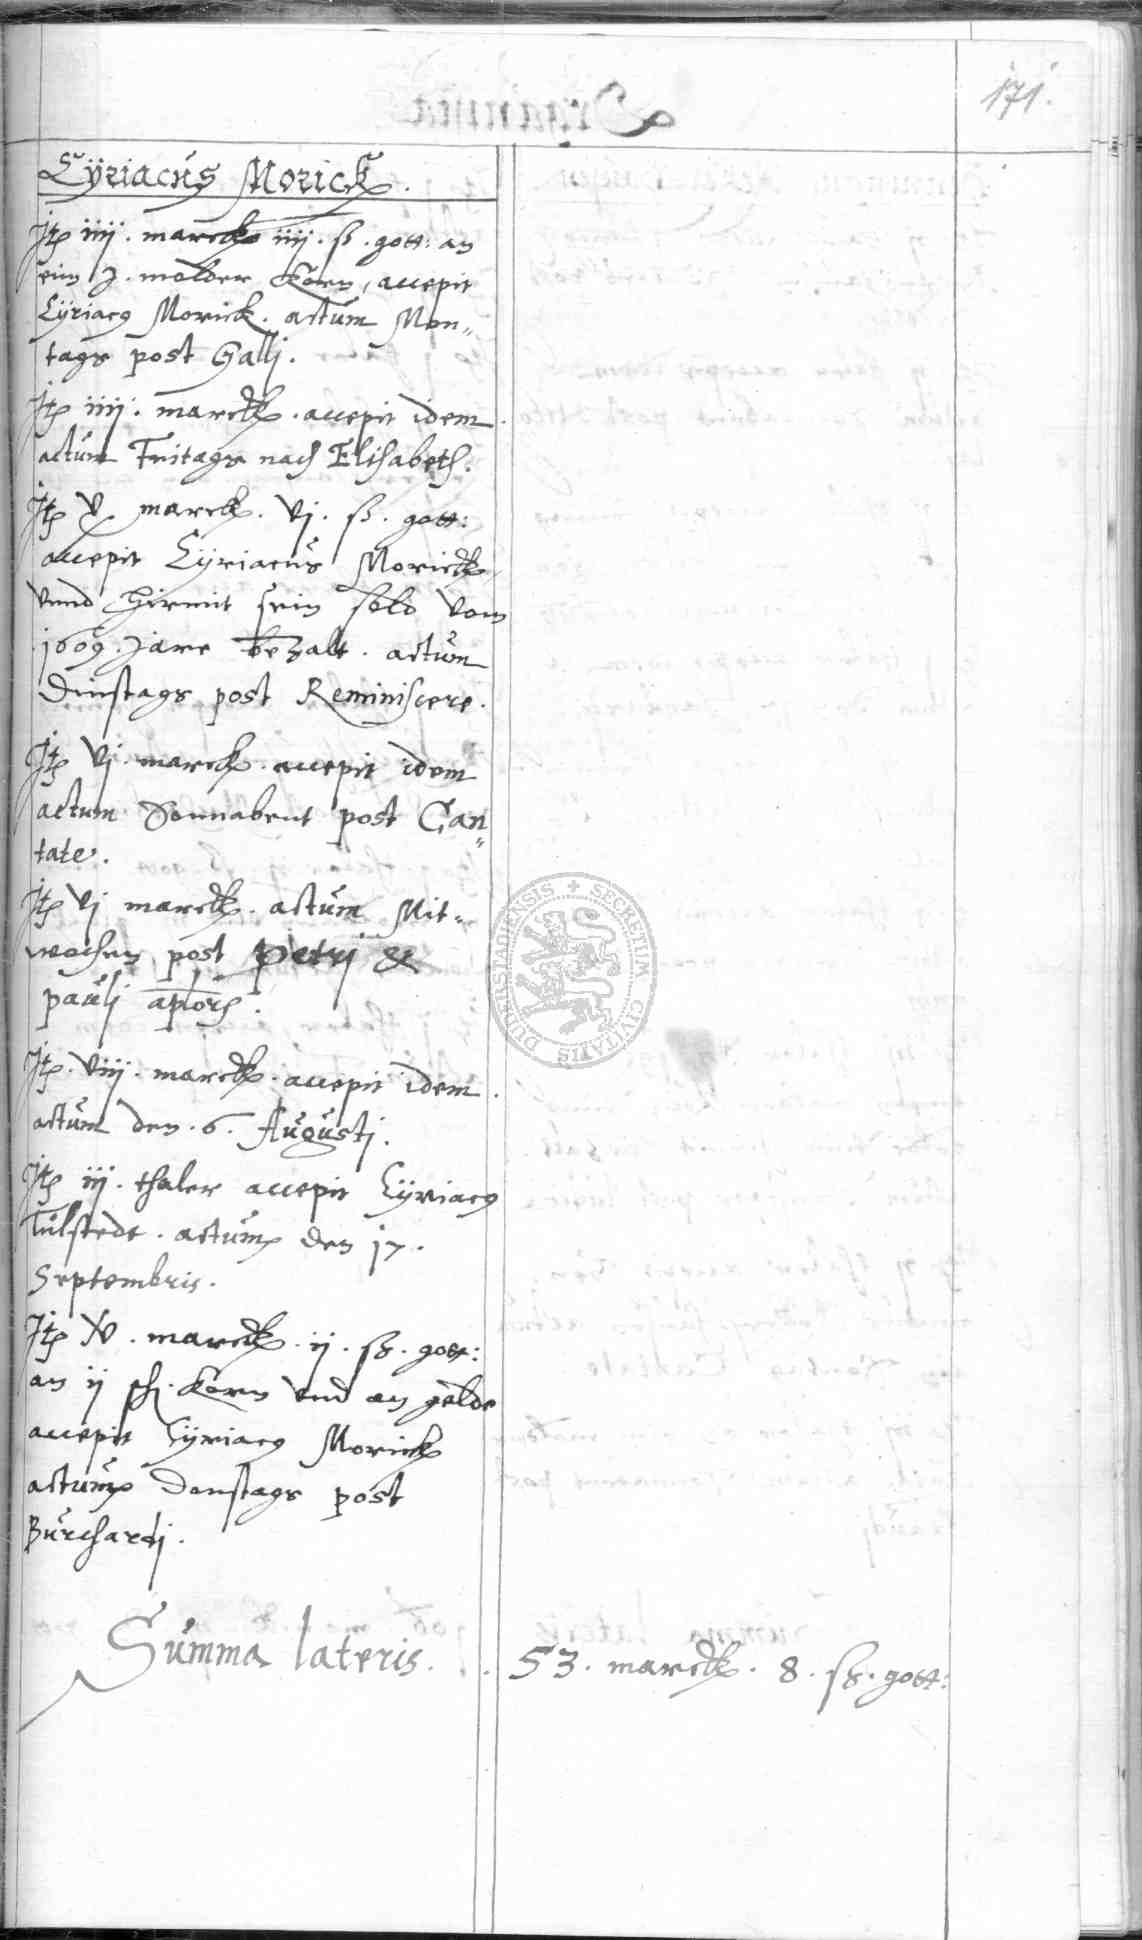 171.
Cÿriacus Morick.
Jtꝫ iiij. marck iiij. ß. gott: an
eim j. molder Korn, accepit
Cÿriacꝫ Morick. actum Mon„
tags post Galli.
Jtꝫ iiij. marck. accepit idem.
actum Fritags nach Elisabeth.
Jtꝫ v marck. vj. ß. gott:
accepit Cÿriacus Morick
vnnd hirmit sein sold vom
1609. Jare bezalt. actum
Dinstags post Reminiscere.
Jtꝫ vj. marck. accepit idem
actum Sonnabent post Can„
tate.
Jtꝫ vj marck. actum Mit„
wochen post Petri &
Pauli aplorꝫ.
Jtꝫ. viij. marck. accepit idem.
actum den. 6. Augusti.
Jtꝫ iij. thaler accepit Cÿriacꝫ
Tülstedt. actum den 17.
Septembris.
Jtꝫ xv. marck. ij. ß. gott:
an ij Korn vnd an gelde
accepit Cÿriacꝫ Morick
actum Donstags post
Burchardi.
Summa lateris. . 53. marck. 8. ß. gott:
SECRETUM CIVITATIS DUDERSTADIENSIS